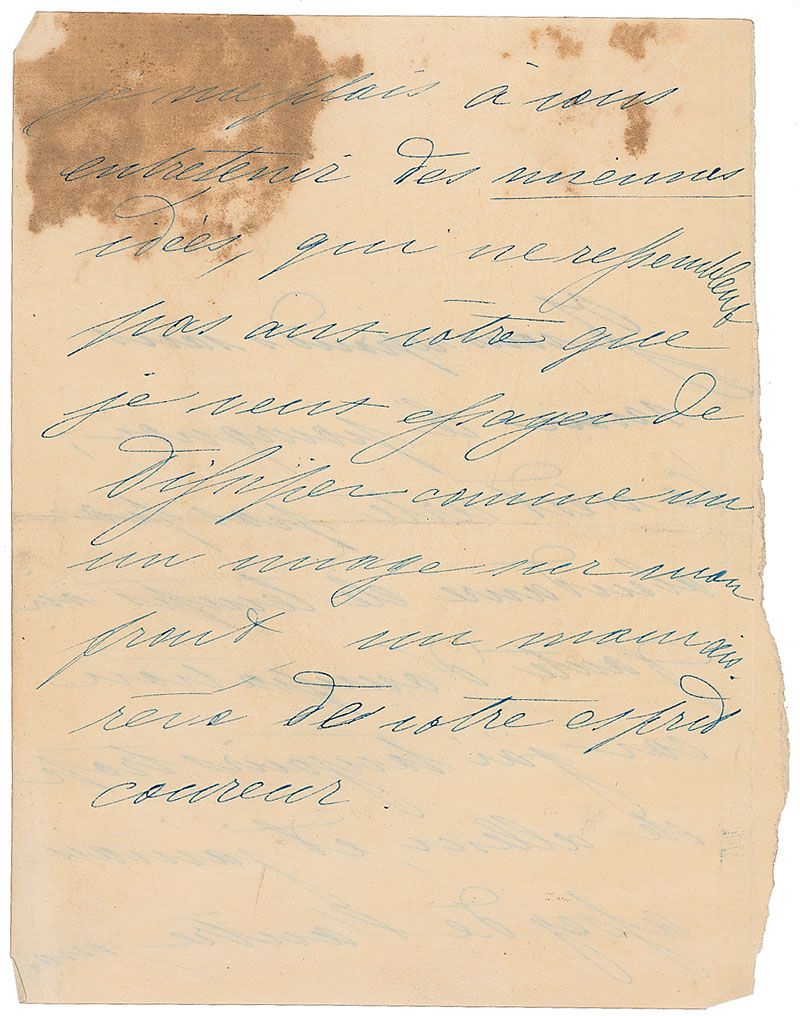 je me plais à vous
entretenir des miennes
idées, qui ne ressemblent
pas aux votre que
je veux essayer de
dissiper comme un
un nuage sur mon
front un mauvais
rêve de votre esprit
coureur.